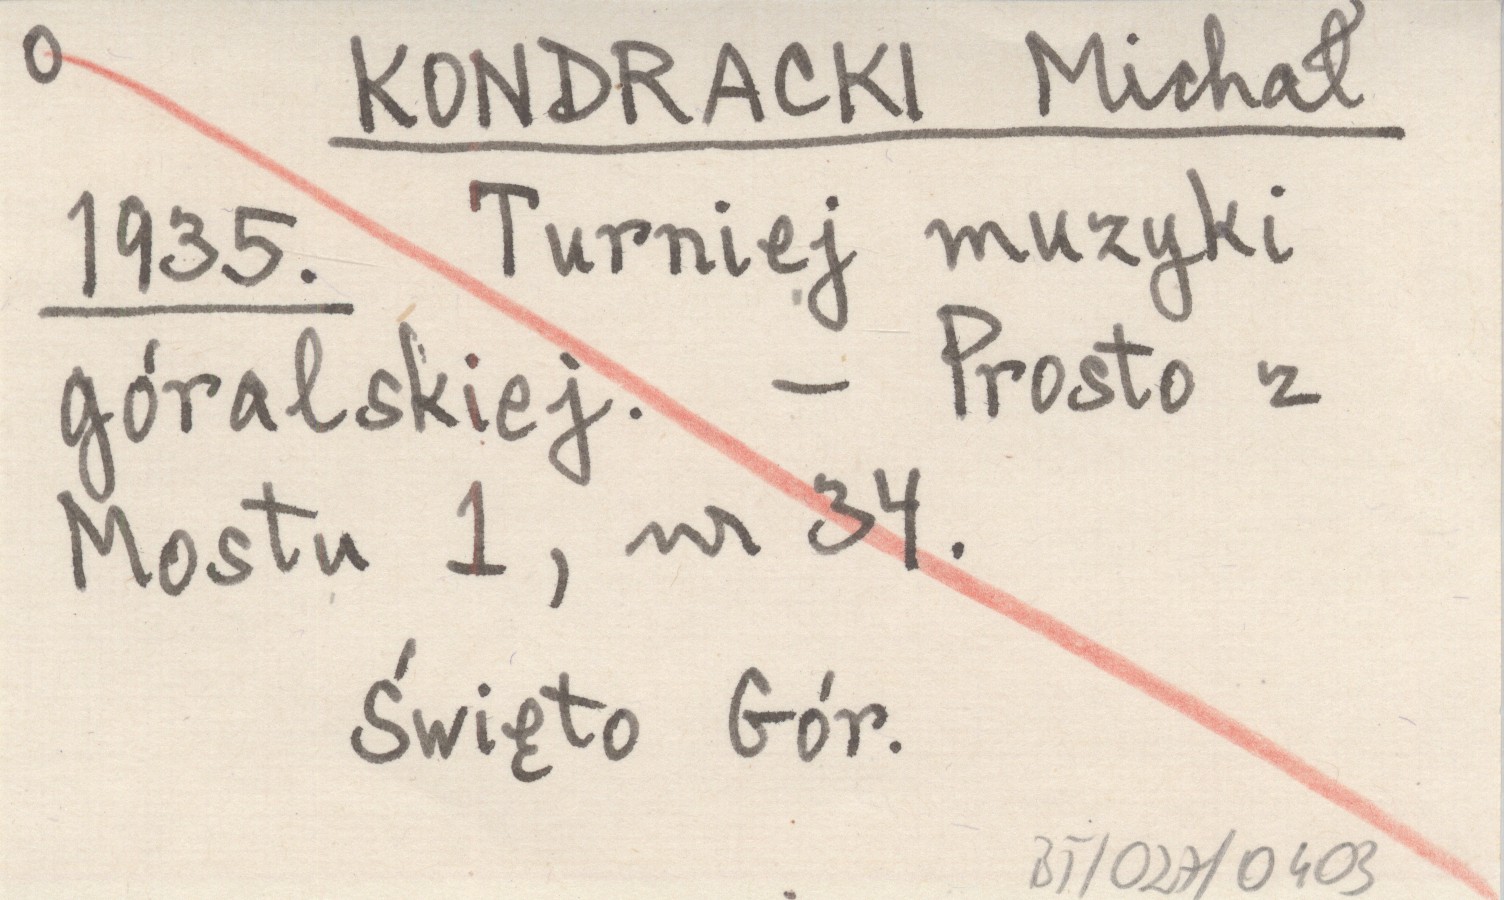 0 KONDRACKI Michał
1935. Turniej muzyki
góralskiej. – Prosto z
Mostu 1, nr 34.
Święto Gór.
BT/027/0403